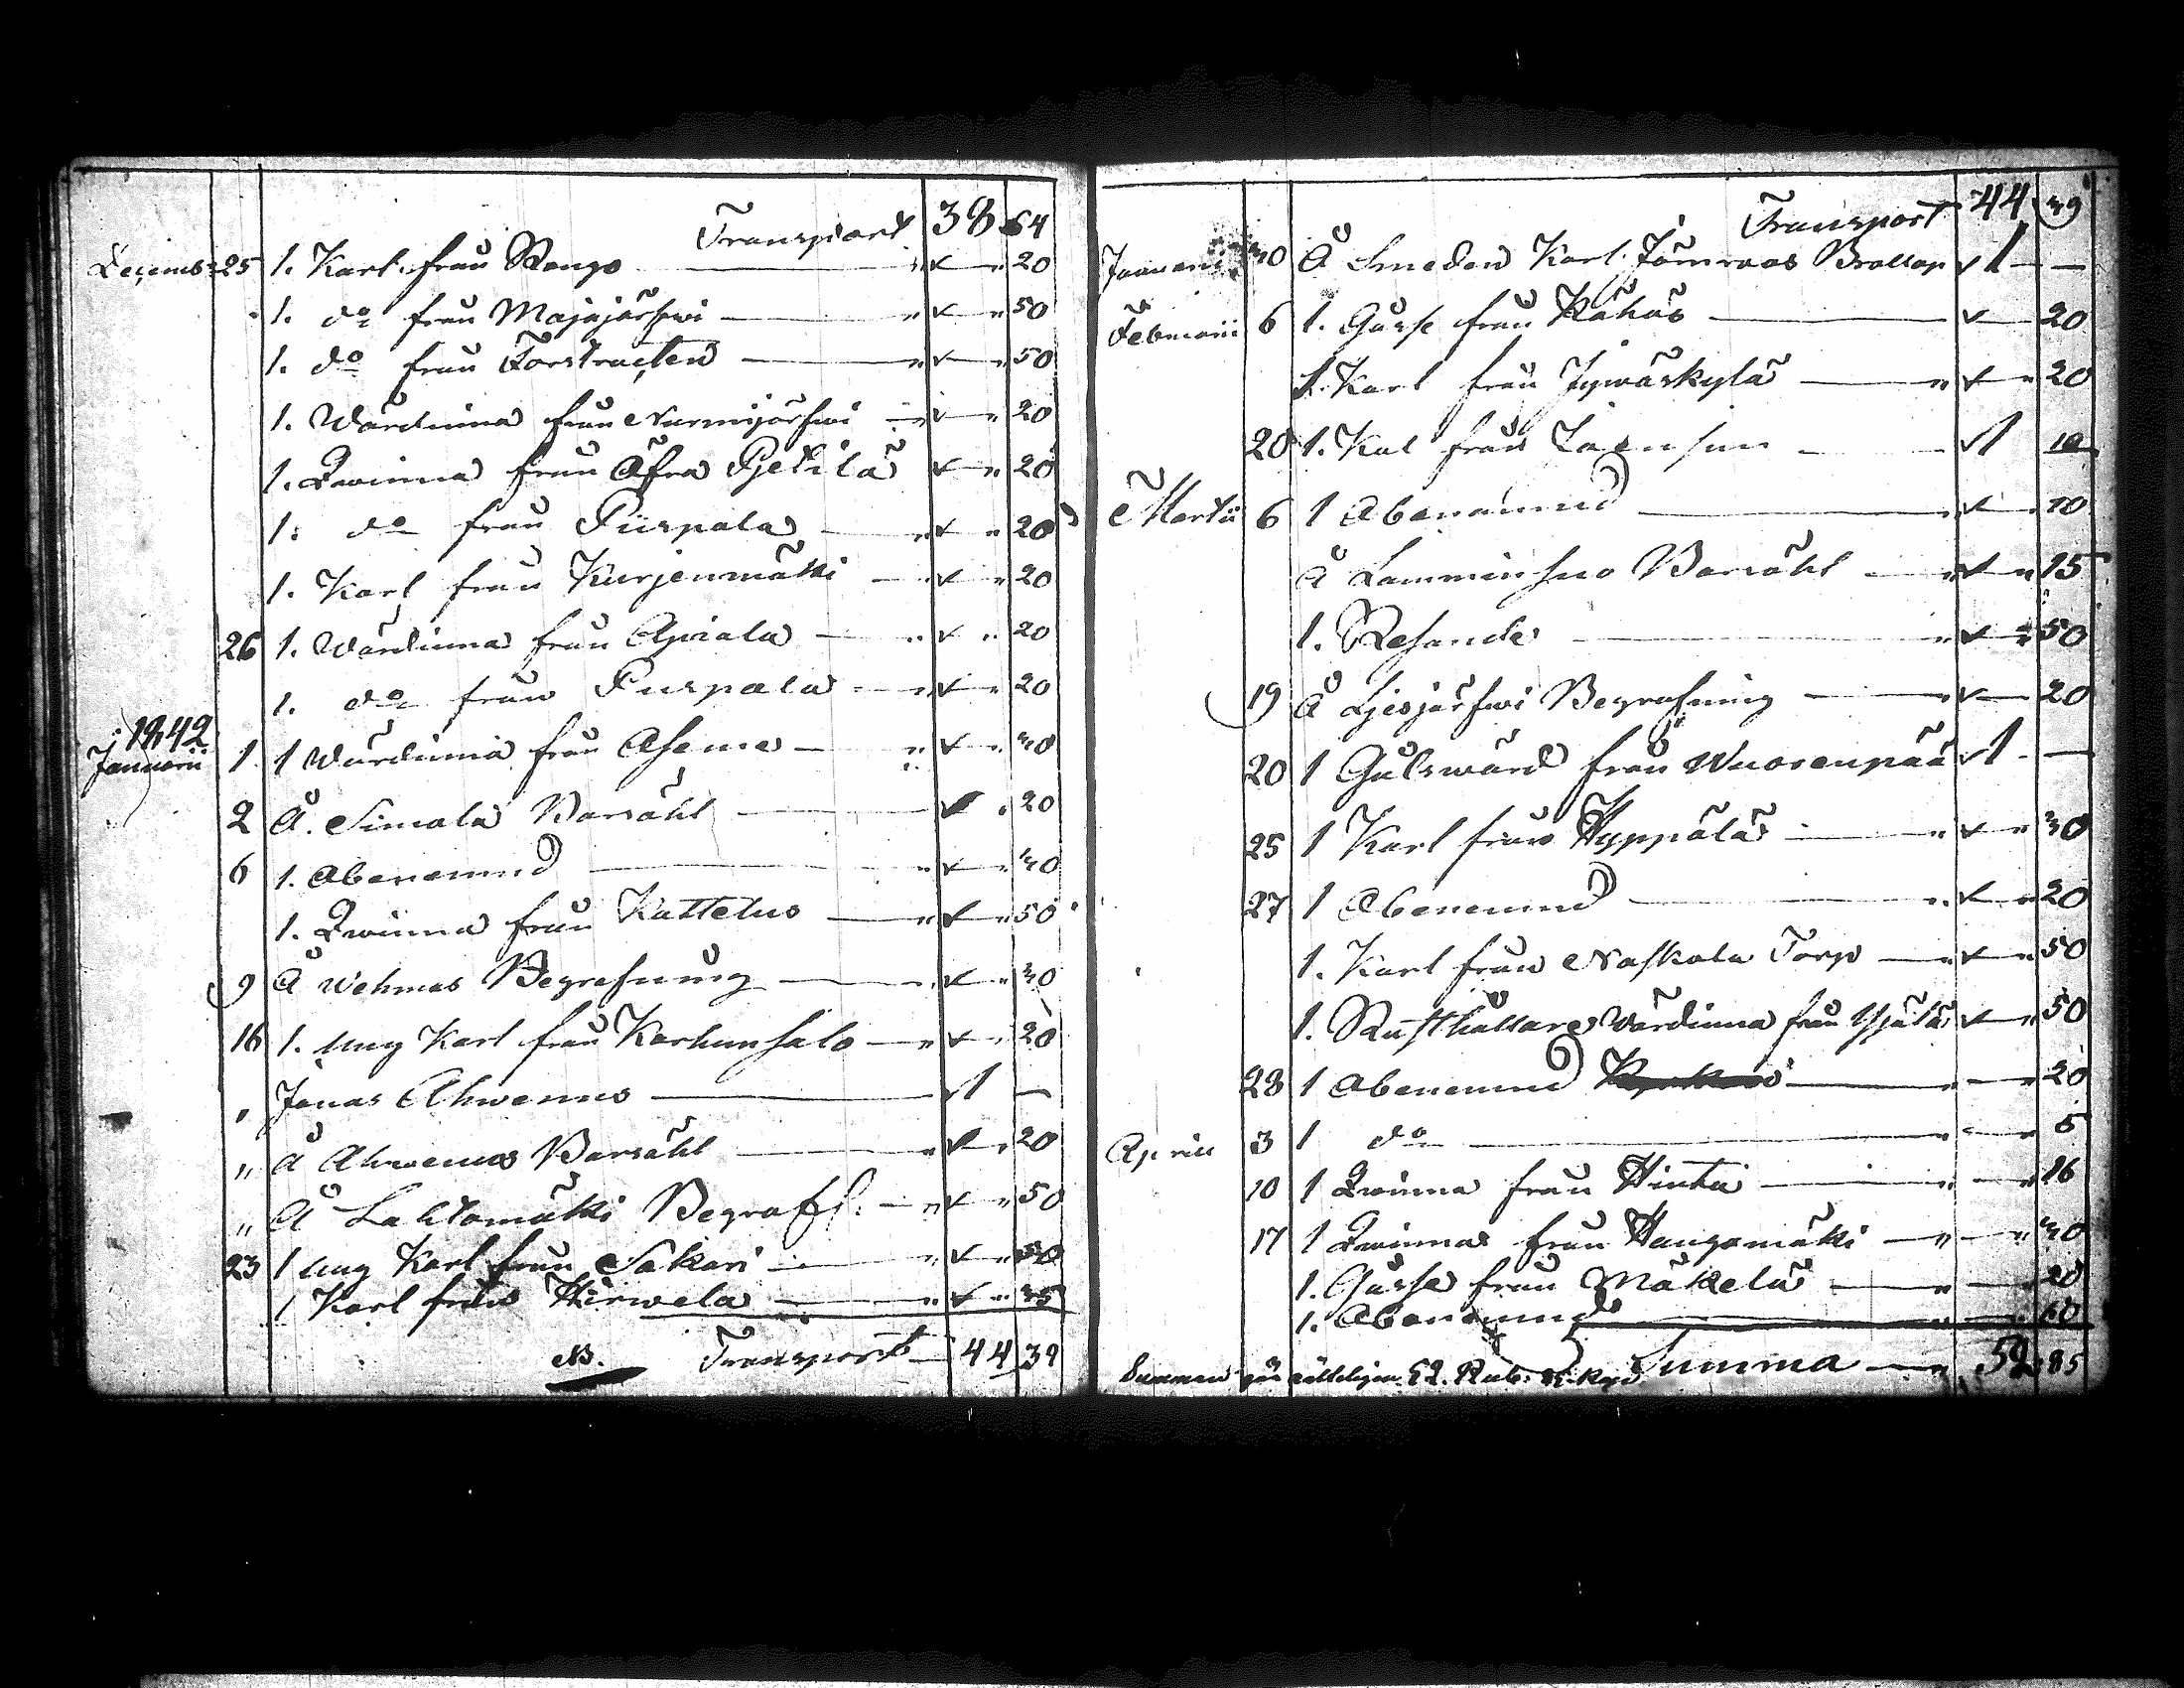 Transport 38 64
Decemb: 25 1. Karl från Wongo " v " 20
1. do från Majajärfwi " v " 50
1. do från Torstracten " v " 50
1. Wärdinna från Nurmijärfwi " v " 20
1. Qwinna från Öfra Pjetilä v " 20
1. do från Piispala " v " 20
1. Karl från Kurjenmäki " v " 20
26 1. Wärdinna från Apiala " v " 20
1. do från Puspala " v " 20
1842
Januarii 1 1 Wärdinna från Aseme " v " 40
2 Å Simola Barsöhl v " 20
6 1. Obenemnd " v " 40
1. Qwinna från Kattelus " v " 50
9 Å Wehmas Begrafning " v " 30
16 1. ung Karl från Karhunsalo " v " 20
" Jonas Ahwenus v 1 —
" Å Ahwenus Barsöhl " v " 20
" Å Lahtomäki Begrafn. " v " 50
23 1 ung Karl från Sakari " v "
1 Karl från Hirwela " v " 35
NB. Transport 44 39
Transport 44 39
Januarii 30 Å Smeden Karl Bröllop v 1 —
Februarii 6 1. Gåsse från Kähäs v 20
1. Karl från Jywäskylä " v " 20
20 1. Karl från v 1 10
Martii 6 1 Obenämnd " v " 10
Å Lamminsuo Barsöhl " v " 15
1. Resande " v " 50
19 Å Ljesjärfwi Begrafning " v 20
20 1 Gålswärd från Wuorenpää v 1 —
25 1 Karl från Hyppölä " v " 30
27 1 Obenemnd " v " 20
1. Karl från Naskala Torp " v " 50
1. Rusthållare Wärdinna från Ypäjä v " 50
28 1 Obenemnd " — " 20
Aprill 3 1 do " — " 5
10 1 Qwinna från Hinta " — " 16
17 1 Qwinna från Haugomäki " — " 40
1. Gåsse från Mäkelä " — 20
1. Obenemnd " — " 60
Summan är 52. Rub. 85. Kop. Summa " 52 85